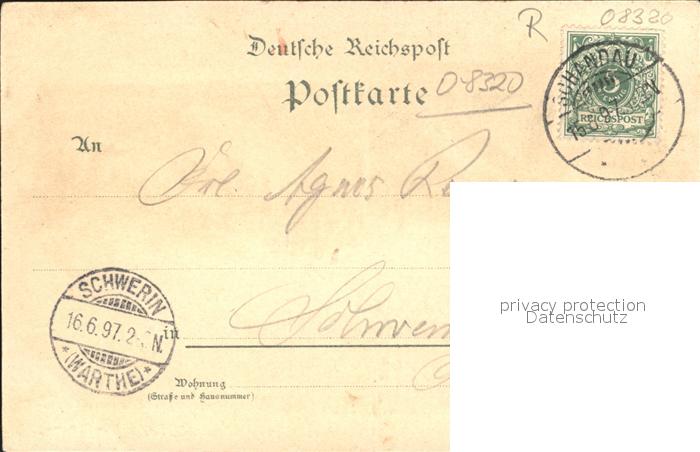 R 08320
Deutsche Reichspost
Postkarte
0-8320
SCHANDAU
5
REICHSPOST
An
Frl. Agnes
SCHWERIN
16.6.97. 2- N.
*(WARTHE)*
in
Wohnung
(Straße und Hausnummer)
privacy protection
Datenschutz